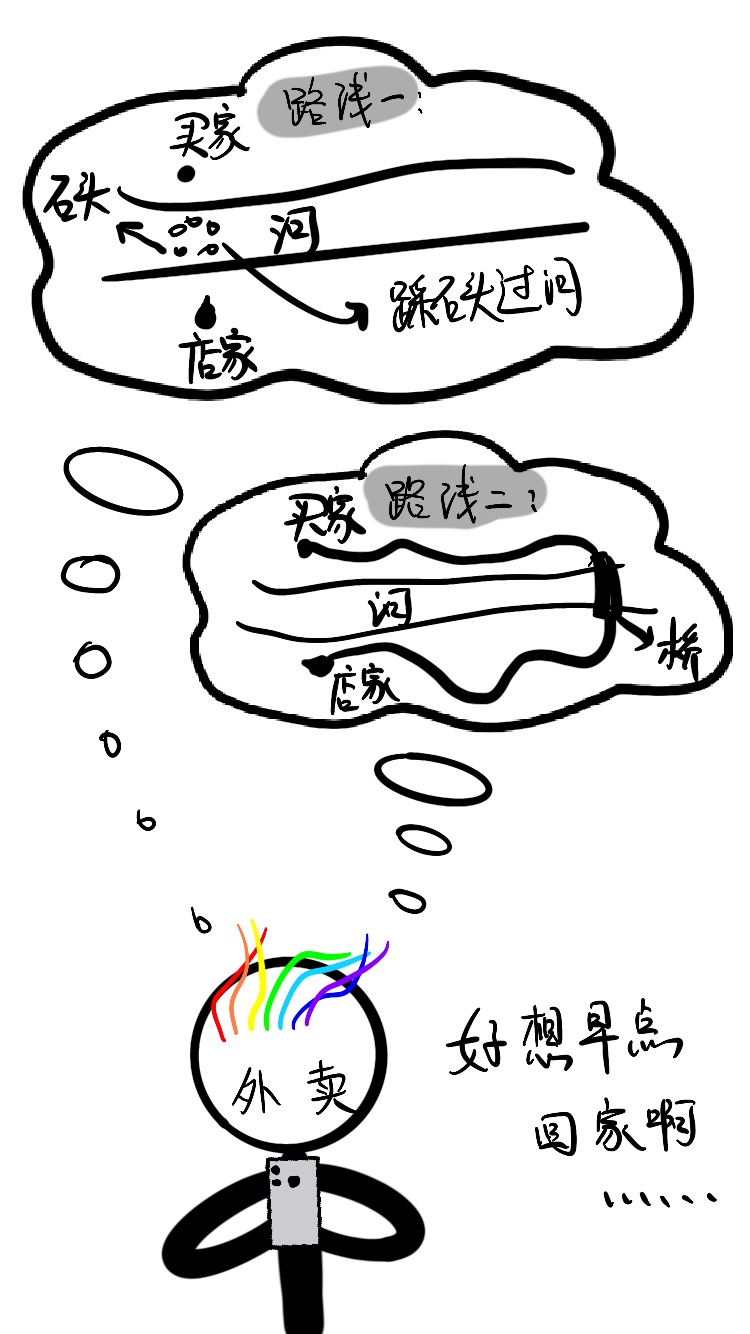 路线一：
买家
石头
河
踩石头过河
店家
路线二：
买家
河
桥
店家
外卖
好想早点
回家啊
......